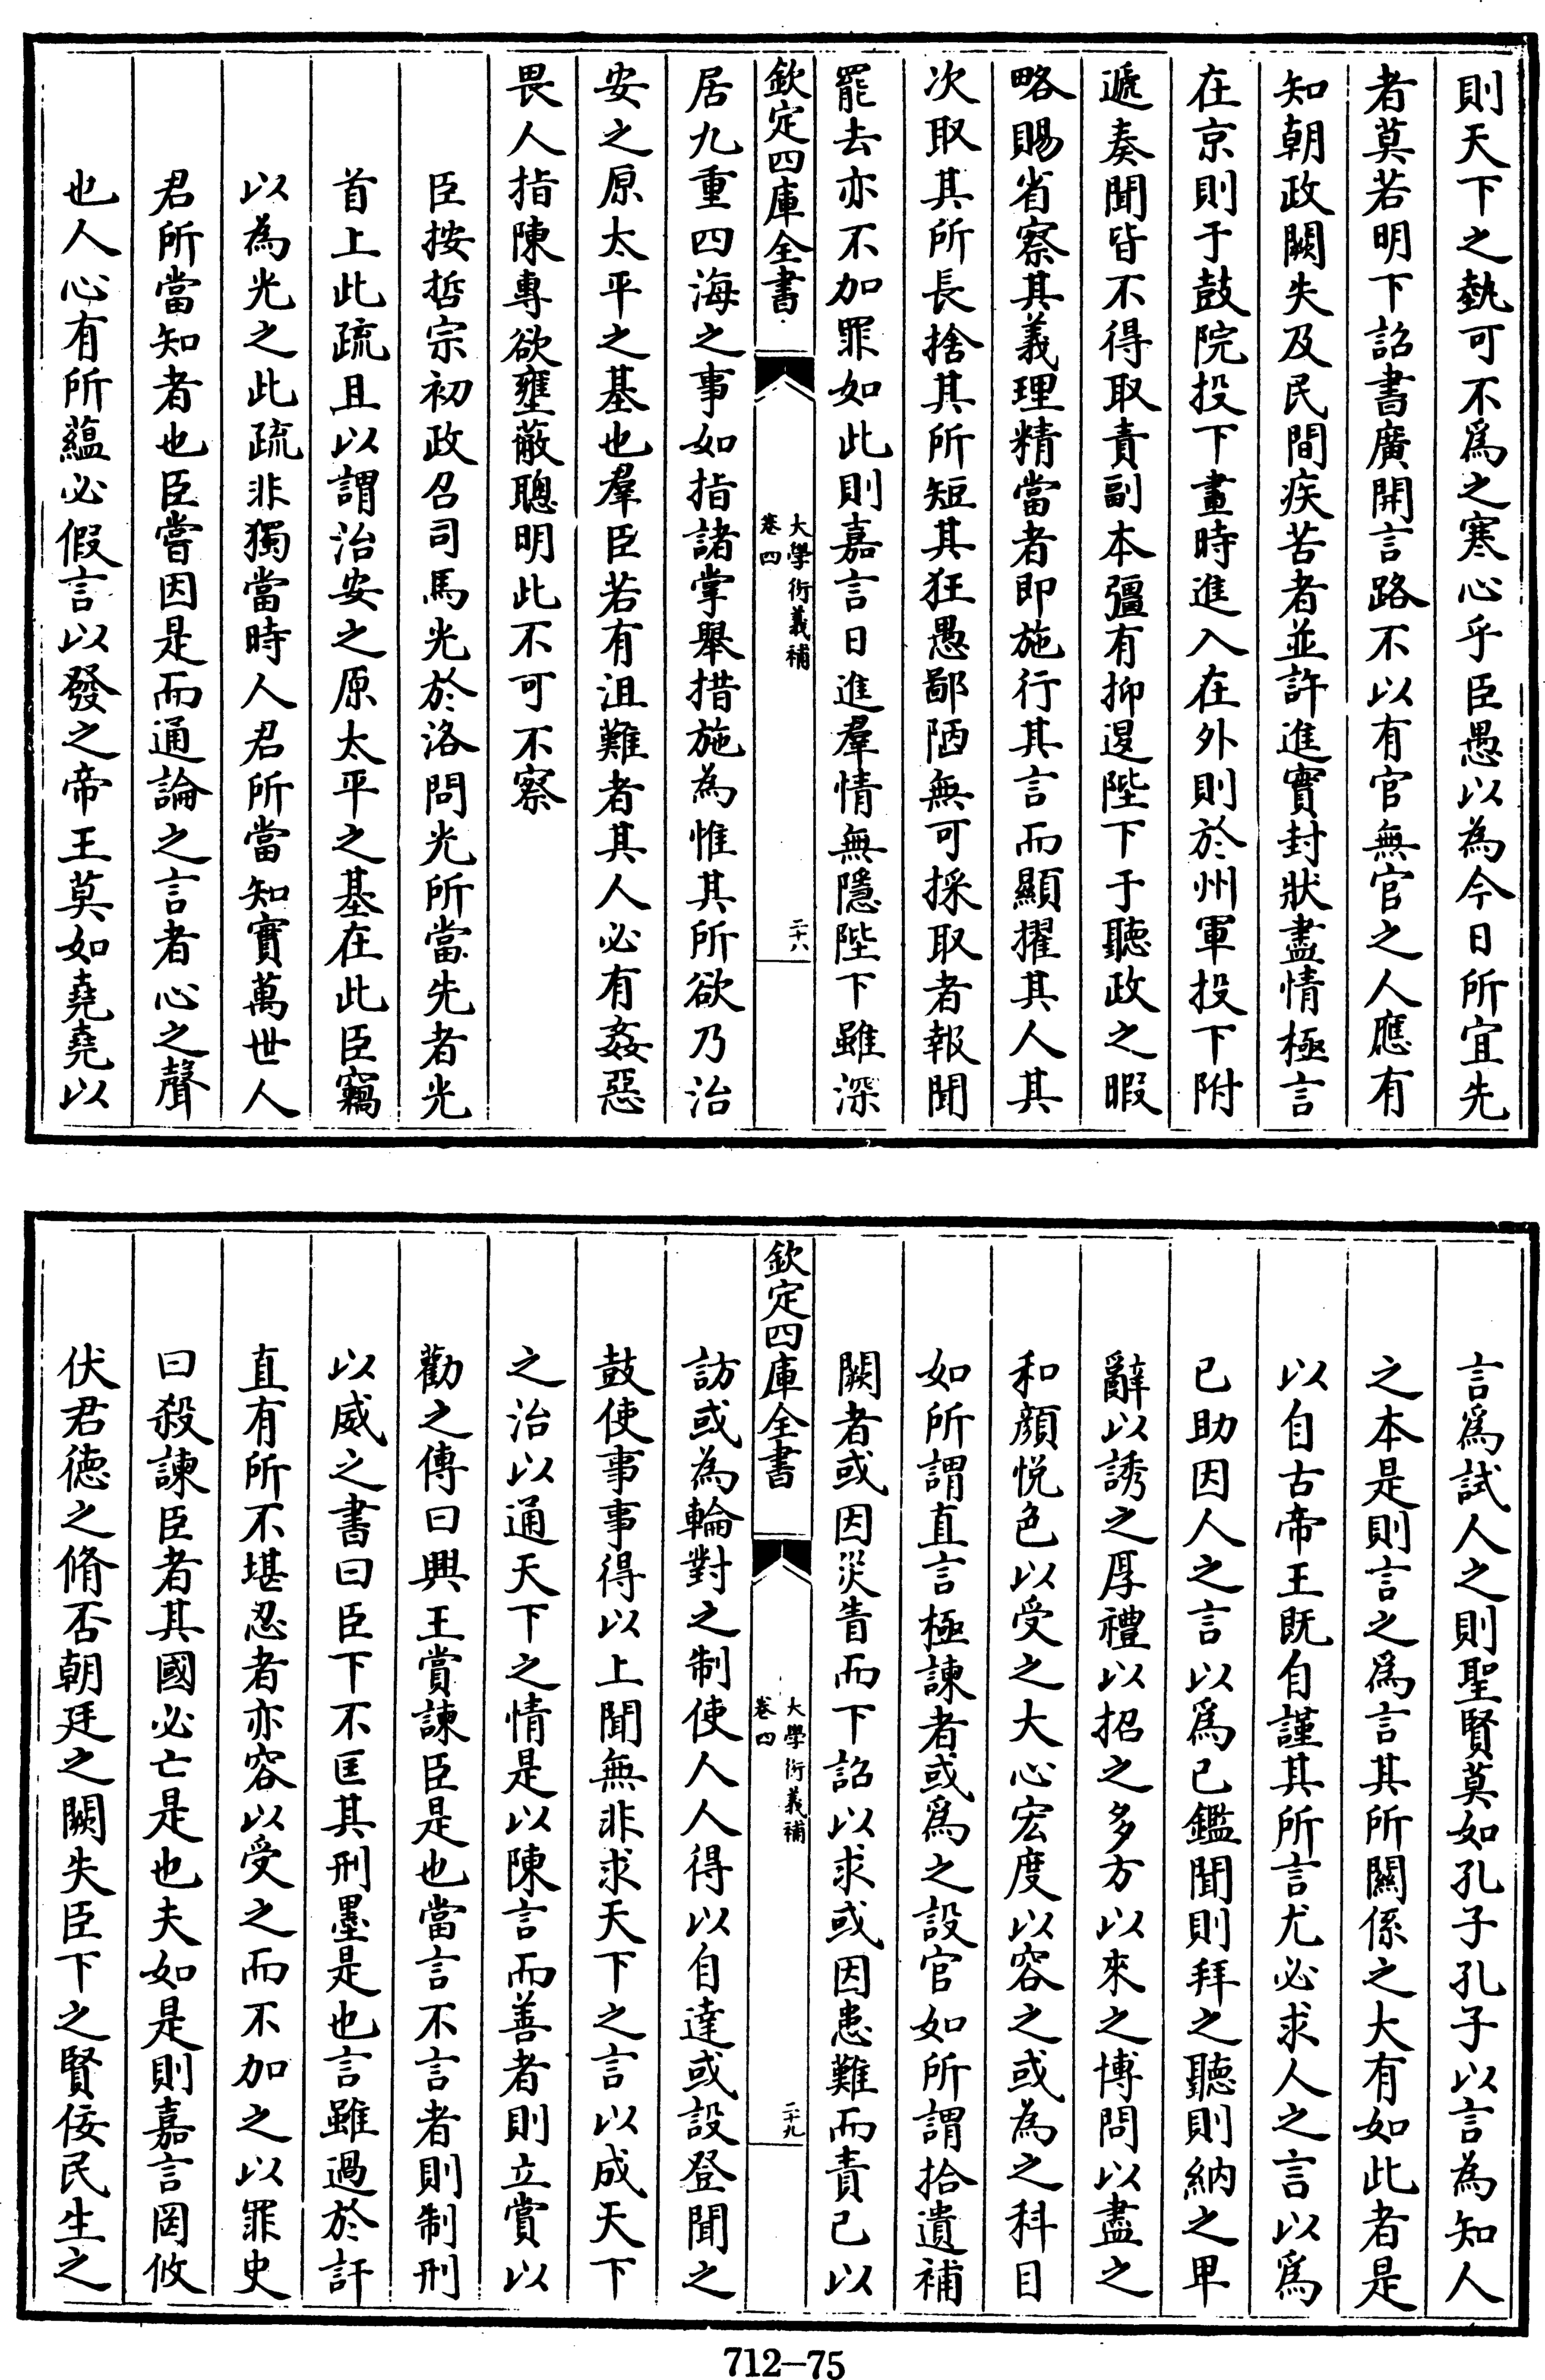 則天下之埶可不爲之寒心乎臣愚以為今日所宜先
者莫若明下詔書廣開言路不以有官無官之人應有
知朝政闕失及民間疾苦者並許進實封狀盡情極言
在京則于鼓院投下畫時進入在外則於州軍投下附
遞奏聞皆不得取責副本彊有抑退陛下于聽政之暇
略賜省察其義理精當者即施行其言而顯擢其人其
次取其所長捨其所短其狂愚鄙陋無可採取者報聞
罷去亦不加罪如此則嘉言日進羣情無隱陛下雖深
欽定四庫全書
大學衍義補
卷四
二十八
居九重四海之事如指諸掌舉措施為惟其所欲乃治
安之原太平之基也羣臣若有沮難者其人必有姦惡
畏人指陳專欲壅蔽聰明此不可不察
臣按哲宗初政召司馬光於洛問光所當先者光
首上此疏且以謂治安之原太平之基在此臣竊
以為光之此疏非獨當時人君所當知實萬世人
君所當知者也臣嘗因是而通論之言者心之聲
也人心有所蘊必假言以發之帝王莫如堯堯以
言爲試人之則聖賢莫如孔子孔子以言為知人
之本是則言之爲言其所關係之大有如此者是
以自古帝王既自謹其所言尤必求人之言以爲
已助因人之言以爲已鑑聞則拜之聽則納之卑
辭以誘之厚禮以招之多方以來之博問以盡之
和顔悅色以受之大心宏度以容之或為之科目
如所謂直言極諫者或爲之設官如所謂拾遺補
闕者或因災眚而下詔以求或因患難而責己以
欽定四庫全書
大學衍義補
卷四
二十九
訪或為輪對之制使人人得以自達或設登聞之
鼓使事事得以上聞無非求天下之言以成天下
之治以通天下之情是以陳言而善者則立賞以
勸之傳曰興王賞諫臣是也當言不言者則制刑
以威之書曰臣下不匡其刑墨是也言雖過於訐
直有所不堪忍者亦容以受之而不加之以罪史
曰殺諫臣者其國必亡是也夫如是則嘉言罔攸
伏君德之脩否朝廷之闕失臣下之賢佞民生之
712—75